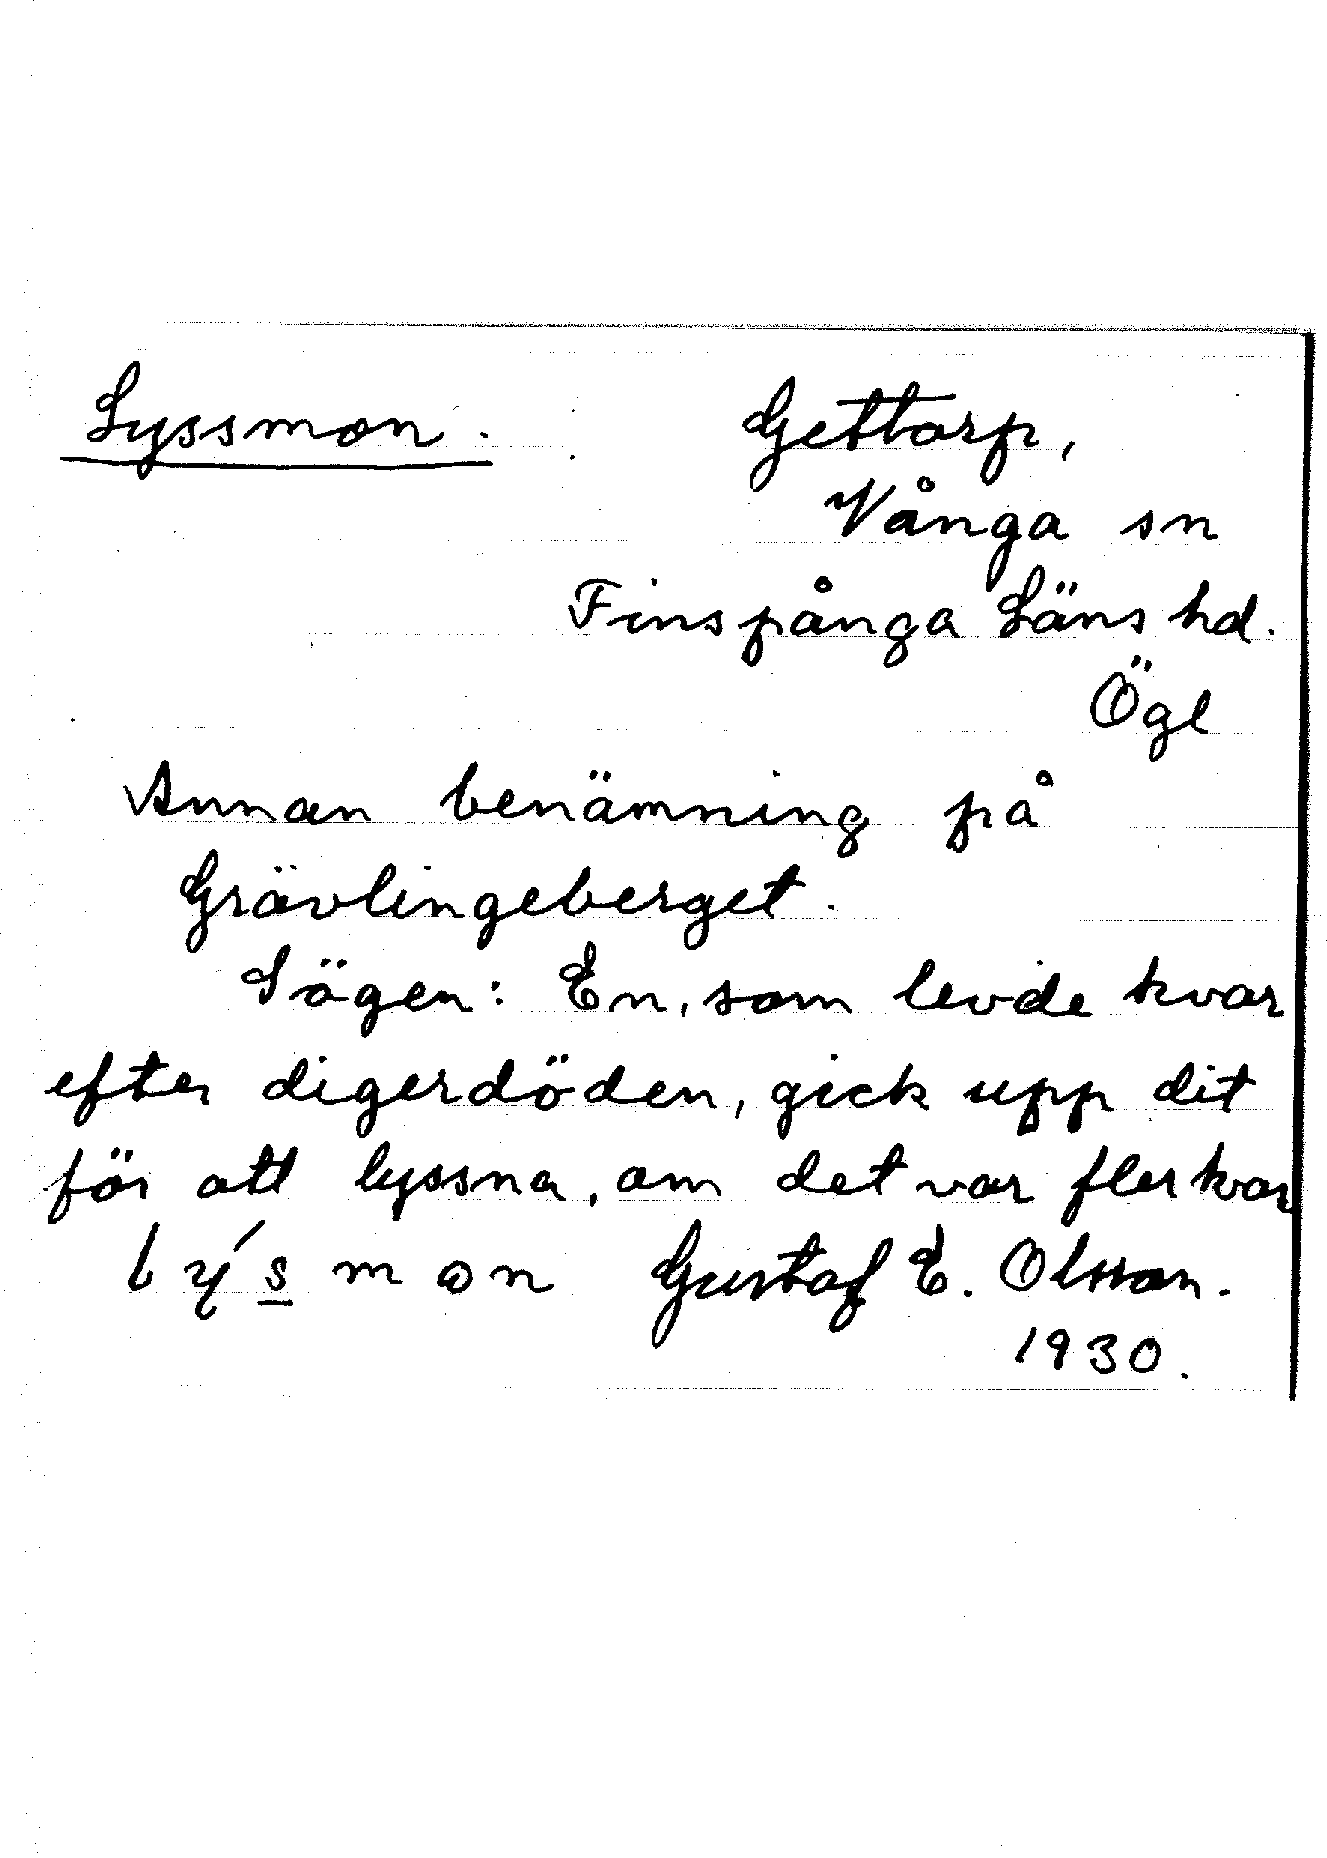 Lyssmon. Gettorp,
Vånga sn
Finspånga Läns hd.
Ögl
Annan benämning på
Grävlingeberget.
Sägen: En, som levde kvar
efter digerdöden, gick upp dit
för att lyssna, om det var fler kvar
lýsmon Gustaf E. Olsson.
1930.